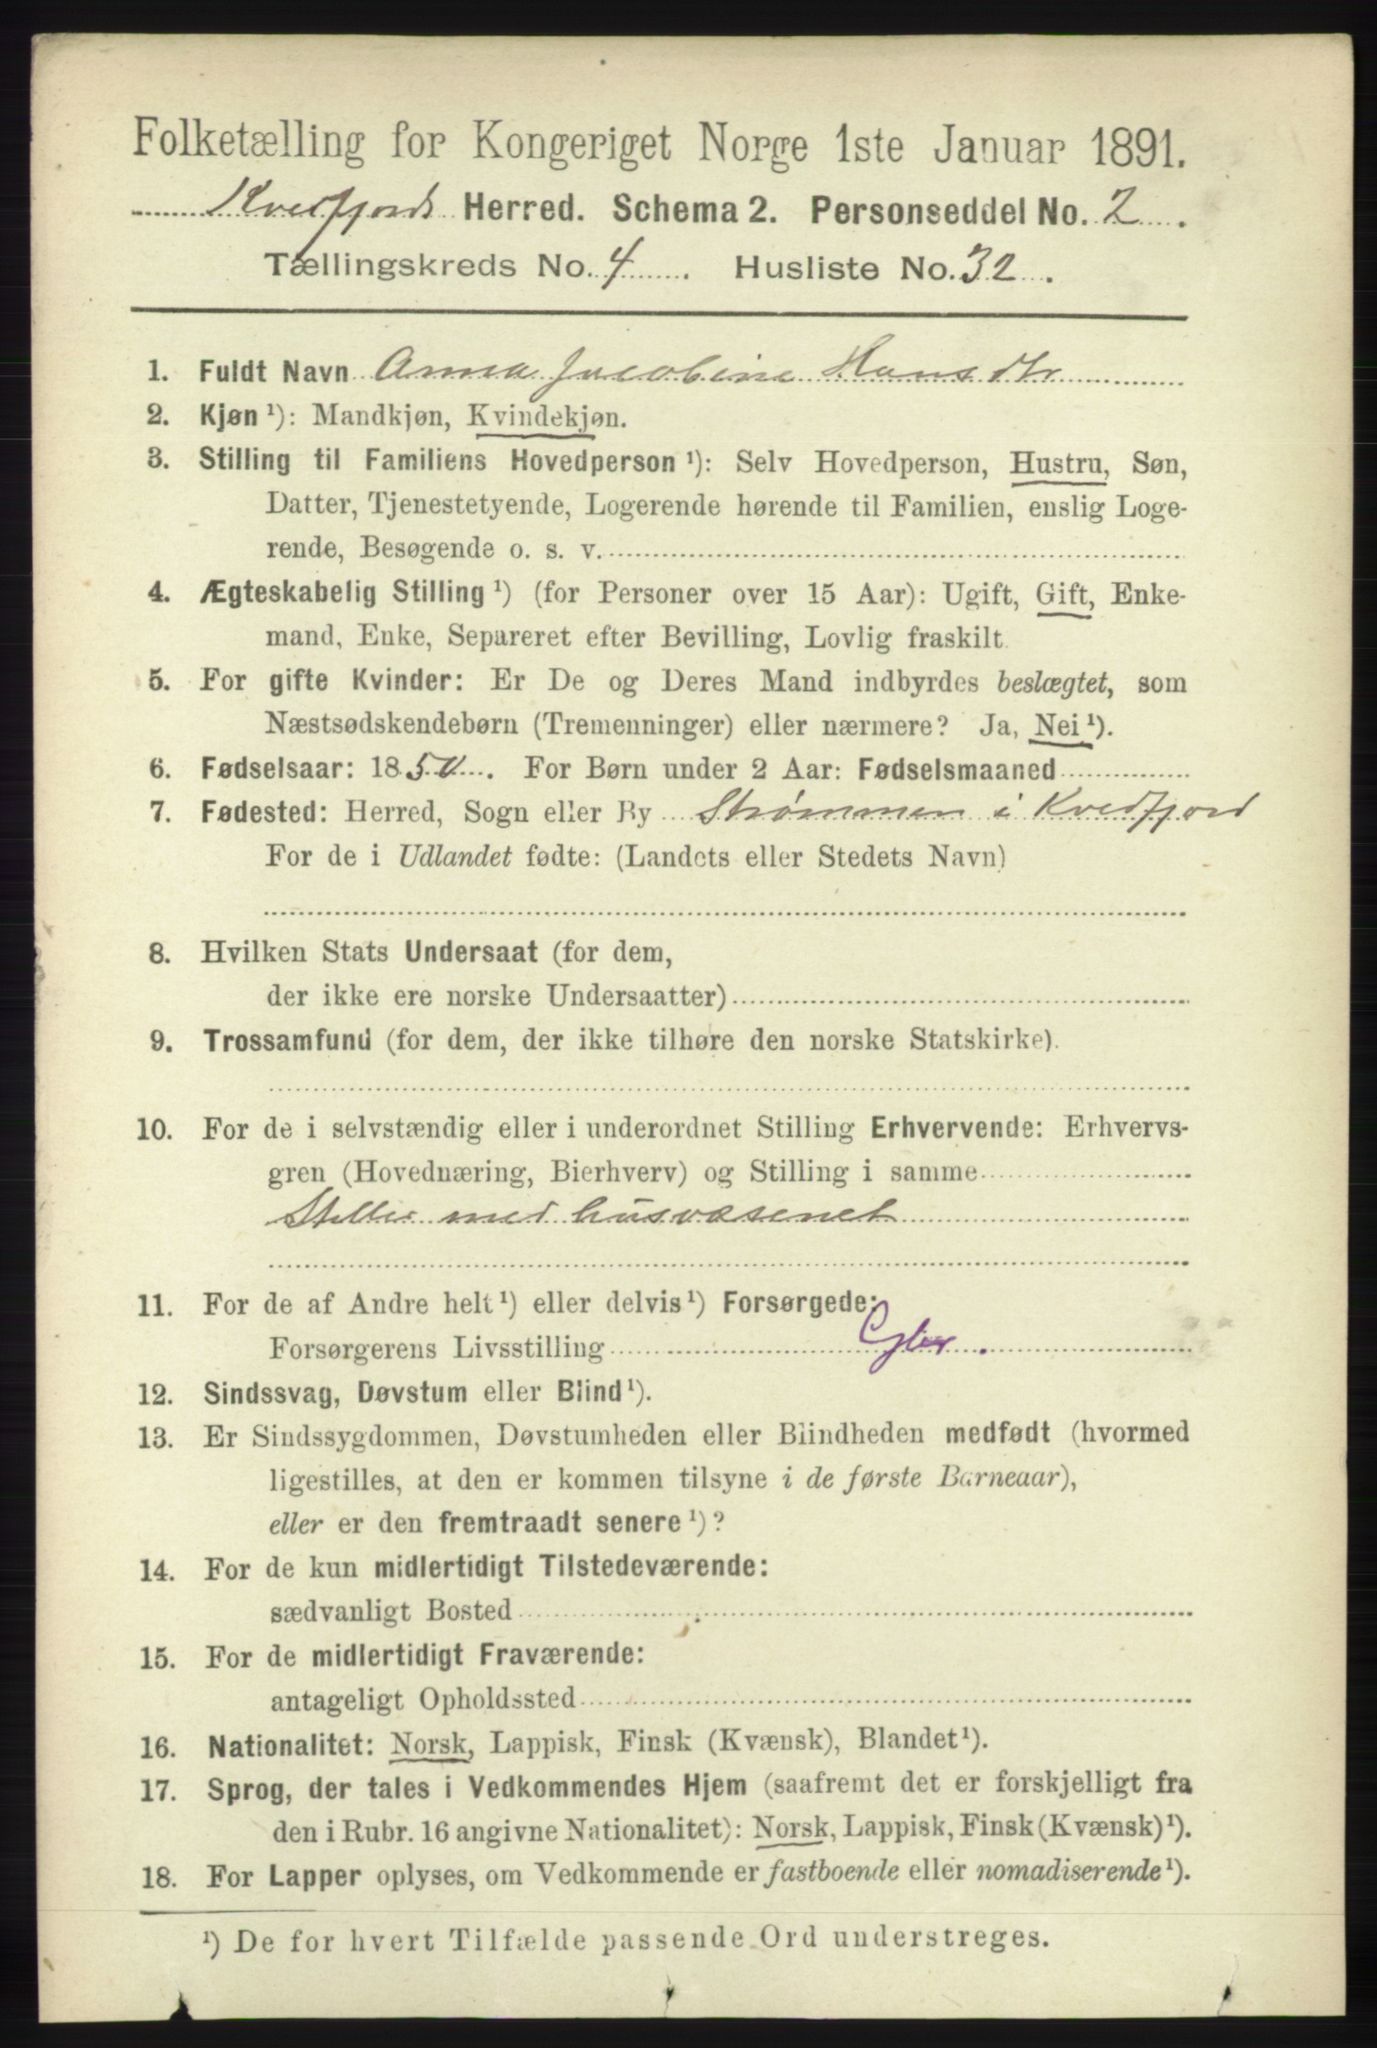 Folketælling for Kongeriget Norge 1ste Januar 1891.
Kvedfjords Herred. Schema 2. Personseddel No. 2.
Tællingskreds No. 4. Husliste No. 32.
1. Fuldt Navn Anna Jacobine Hansdtr
2. Kjøn ¹): Mandkjøn, Kvindekjøn.
3. Stilling til Familiens Hovedperson ¹): Selv Hovedperson, Hustru, Søn,
Datter, Tjenestetyende, Logerende hørende til Familien, enslig Loge-
rende, Besøgende o. s. v.
4. Ægteskabelig Stilling ¹) (for Personer over 15 Aar): Ugift, Gift, Enke-
mand, Enke, Separeret efter Bevilling, Lovlig fraskilt
5. For gifte Kvinder: Er De og Deres Mand indbyrdes beslægtet, som
Næstsødskendebørn (Tremenninger) eller nærmere? Ja, Nei ¹).
6. Fødselsaar: 1850. For Børn under 2 Aar: Fødselsmaaned
7. Fødested: Herred, Sogn eller By Strømmen i Kvedfjord
For de i Udlandet fødte: (Landets eller Stedets Navn)
8. Hvilken Stats Undersaat (for dem,
der ikke ere norske Undersaatter)
9. Trossamfund (for dem, der ikke tilhøre den norske Statskirke).
10. For de i selvstændig eller i underordnet Stilling Erhvervende: Erhvervs-
gren (Hovednæring, Bierhverv) og Stilling i samme
Steller med husvæsenet
11. For de af Andre helt ¹) eller delvis ¹) Forsørgede:
Forsørgerens Livsstilling
12. Sindssvag, Døvstum eller Blind ¹).
13. Er Sindssygdommen, Døvstumheden eller Blindheden medfødt (hvormed
ligestilles, at den er kommen tilsyne i de første Barneaar),
eller er den fremtraadt senere ¹)?
14. For de kun midlertidigt Tilstedeværende:
sædvanligt Bosted
15. For de midlertidigt Fraværende:
antageligt Opholdssted
16. Nationalitet: Norsk, Lappisk, Finsk (Kvænsk), Blandet ¹).
17. Sprog, der tales i Vedkommendes Hjem (saafremt det er forskjelligt fra
den i Rubr. 16 angivne Nationalitet): Norsk, Lappisk, Finsk (Kvænsk) ¹).
18. For Lapper oplyses, om Vedkommende er fastboende eller nomadiserende ¹).
¹) De for hvert Tilfælde passende Ord understreges.